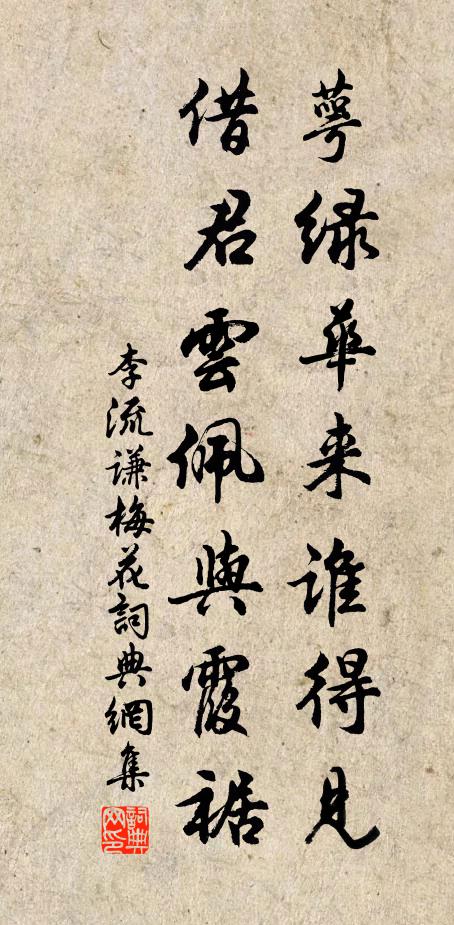 萼綠華来誰得見
借君雲佩與霞裾
李流謙梅花詞典網集
詞典网印